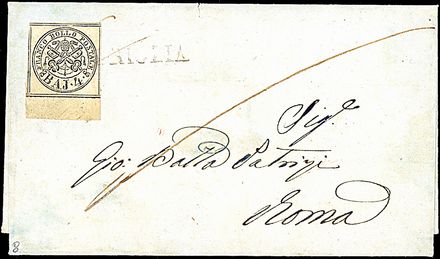 FRANCO BOLLO POSTALE
BAJ. 4.
Sig.
Gio: Batta Patrizi
Roma
8